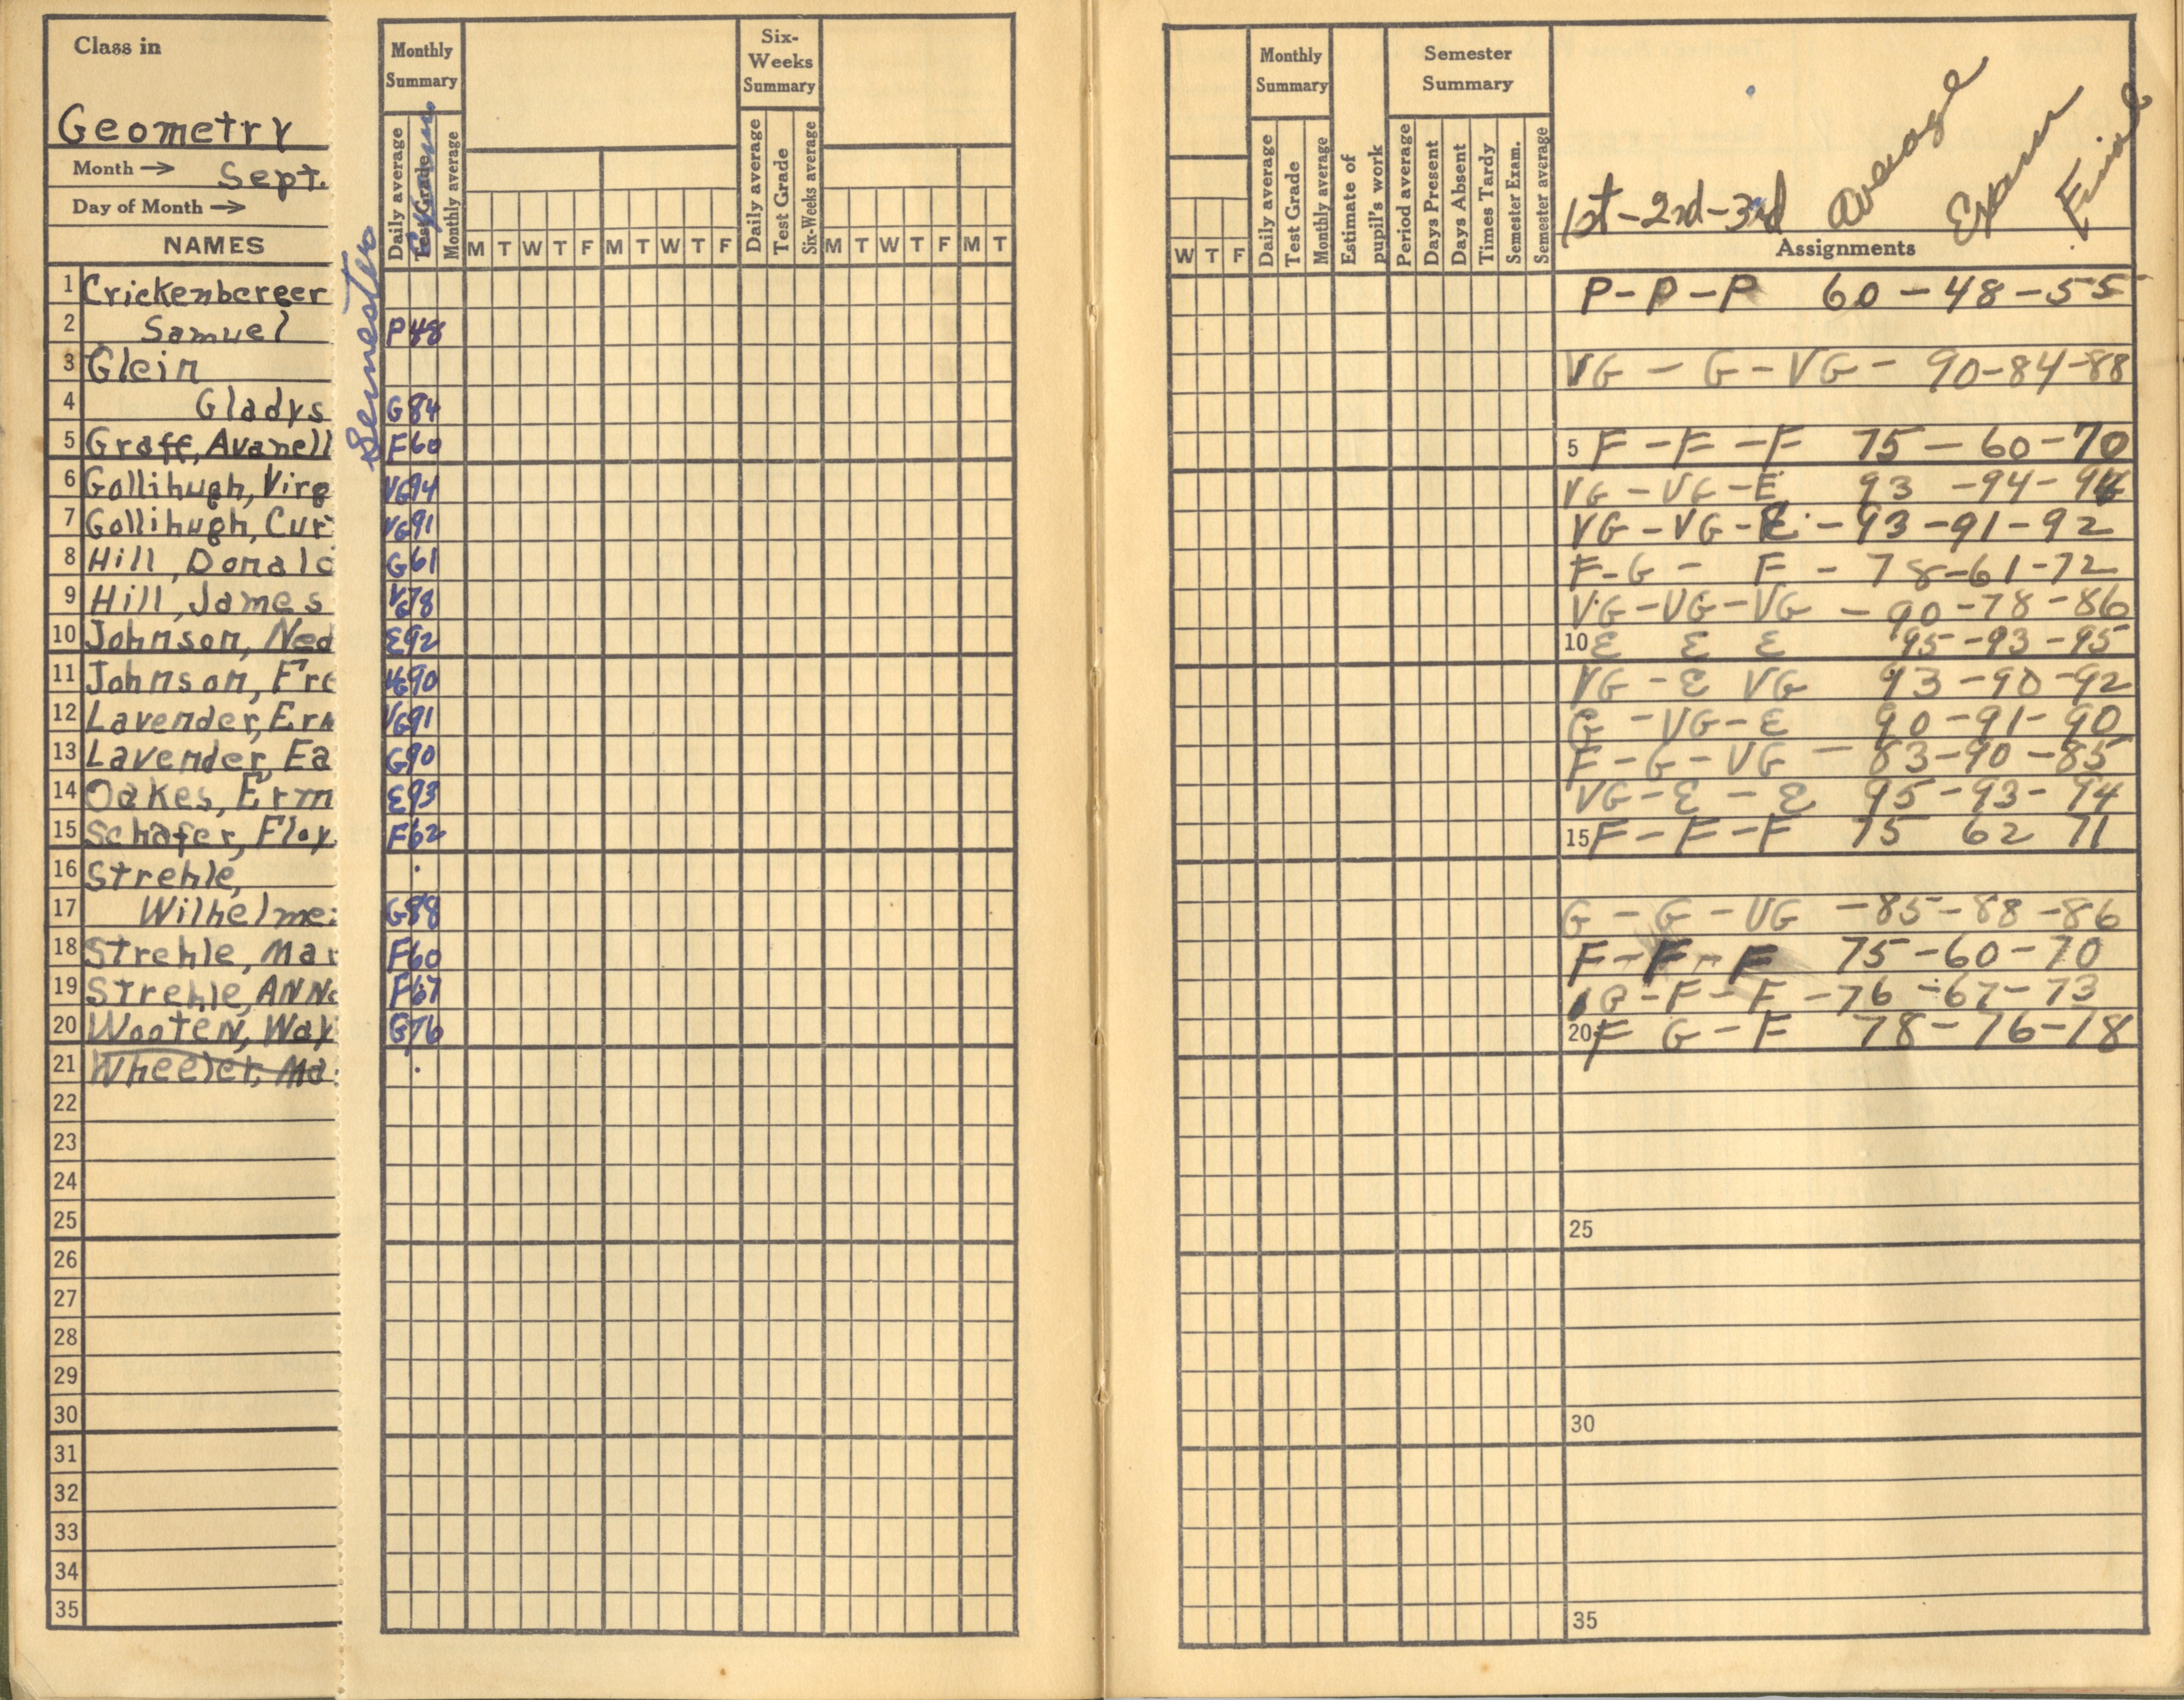 Class in
Geometry
Month → Sept.
Day of Month →
NAMES
1 Crickenberger
2 Samuel
3 Glein
4 Gladys
5 Graff, Avanell
6 Gollihugh, Virg
7 Gollihugh, Cur
8 Hill, Donald
9 Hill, James
10 Johnson, Ned
11 Johnson, Fre
12 Lavender, Ern
13 Lavender, Ea
14 Oakes, Erm
15 Schafer, Floy
16 Strehle,
17 Wilhelme
18 Strehle, Mar
19 Strehle, ANNe
20 Wooten, Way
21 Wheeler, Ma
22
23
24
25
26
27
28
29
30
31
32
33
34
35
Semester
Monthly Summary
Daily average
Test Grade
Exam
Monthly average
M T W T F M T W T F
Six-Weeks Summary
Daily average
Test Grade
Six-Weeks average
M T W T F M T
P 48
G 84
F 60
VG 94
VG 91
G 61
VG 78
E 92
VG 90
VG 91
G 90
E 93
F 62
G 88
F 60
F 67
G 76
W T F
Monthly Summary
Daily average
Test Grade
Monthly average
Estimate of pupil's work
Semester Summary
Period average
Days Present
Days Absent
Times Tardy
Semester Exam.
Semester average
1st-2nd-3rd Average Exam Final
Assignments
P-P-P 60-48-55
VG-G-VG-90-84-88
5 F-F-F 75-60-70
VG-VG-E 93-94-94
VG-VG-E-93-91-92
F-G-F-78-61-72
VG-VG-VG-90-78-86
10 E E E 95-93-95
VG-E VG 93-90-92
G-VG-E 90-91-90
F-G-VG-83-90-85
VG-E-E 95-93-94
15 F-F-F 75 62 71
G-G-VG-85-88-86
F-F-F 75-60-70
G-F-F-76-67-73
20 F G-F 78-76-78
25
30
35